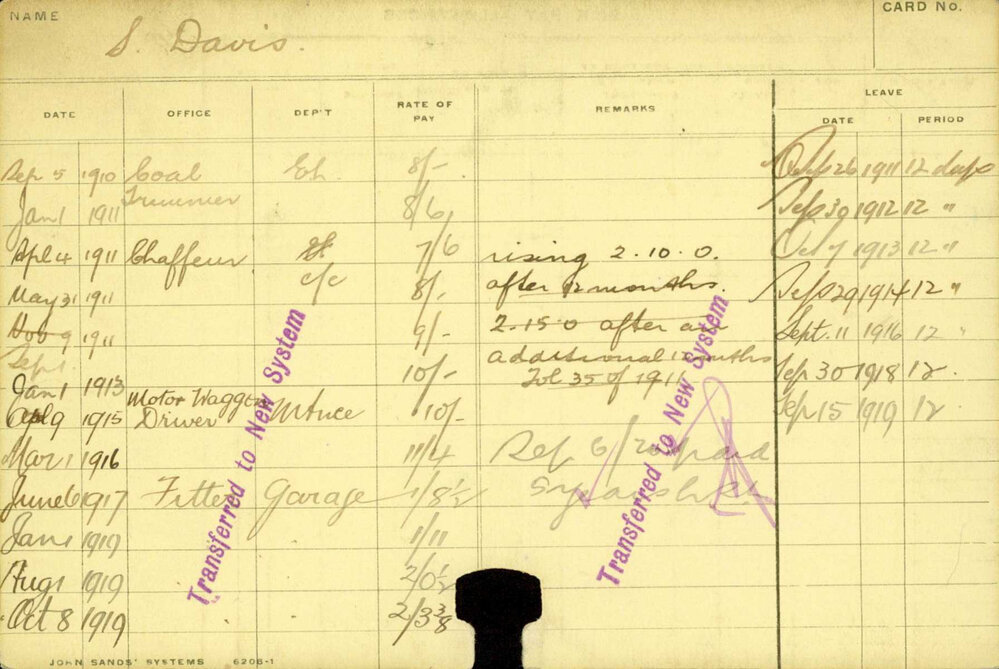 NAME
S. Davis.
CARD No.
DATE OFFICE DEP'T RATE OF PAY REMARKS LEAVE
DATE PERIOD
Sep 5 1910 Coal 8/- Oct 26 1911 12 days
Trimmer
Jan 1 1911 8/6 Sep 30 1912 12 "
Apl 4 1911 Chaffeur 7/6 rising 2.10.0. Oct 7 1913 12 "
May 31 1911 c/c 8/- after 12 months. Sep 29 1914 12 "
9 1911 9/- 2.15.0 after an Sept. 11 1916 12 "
Sept
additional 12 months
Jan 1 1913 10/- 35 of 1911 Sep 30 1918 12.
Motor Waggon
Apl 9 1915 Driver Mtnce 10/- Sep 15 1919 12
Mar 1 1916 11/4 6/
June 6 1917 Fitter Garage 1/8½
Jan 1 1919 1/11
Aug 1 1919 2/0½
Oct 8 1919 2/3⅜
Transferred to New System
Transferred to New System
JOHN SANDS' SYSTEMS 6206-1